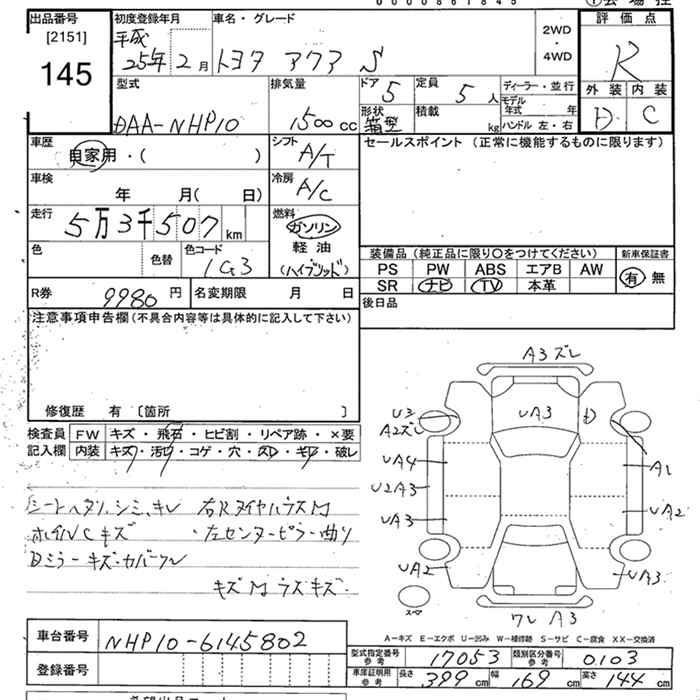 0 0 0 0 8 6 1 8 4 5
出品番号
[2151]
145
初度登録年月
平成
25年 2月
車名・グレード
トヨタ アクア S
2WD
・
4WD
評価点
R
外装 内装
D C
型式
DAA-NHP10
排気量
1500cc
ドア
5
形状
箱型
定員
5人
積載
kg
ディーラー・並行
モデル年式 年
ハンドル 左・右
車歴
自家用・( )
シフト
A/T
セールスポイント (正常に機能するものに限ります)
車検
年 月( 日)
冷房
A/C
走行
5万3千507km
燃料
ガソリン
軽油
(ハイブリッド)
色
色替
色コード
1G3
装備品 (純正品に限り〇をつけてください)
新車保証書
PS PW ABS エアB AW
SR ナビ TV 本革
有 無
R券 9980円
名変期限 月 日
後日品
注意事項申告欄(不具合内容等は具体的に記入して下さい)
修復歴 有 〔箇所 〕
検査員記入欄
FW キズ・飛石・ヒビ割・リペア跡・×要
内装 キズ・汚レ・コゲ・穴・スレ・キレ・破レ
シートヘタリ、シミ、キレ 右Rタイヤハウス M
ホイルCキズ ・左センターピラー曲リ
Dミラーキズ・カバーワレ
キズ M ラズキズ
A3ズレ
UA3
D
U3
A2ズレ
UA4
U2A3
UA3
UA2
A1
UA2
UA3
スペア
ワレ A3
A-キズ E-エクボ U-凹み W-補修跡 S-サビ C-腐食 XX-交換済
車台番号
NHP10-6145802
登録番号
型式指定番号
参考
17053
類別区分番号
参考
0103
車庫証明用
参考
長さ 399cm 幅 169cm 高さ 144cm